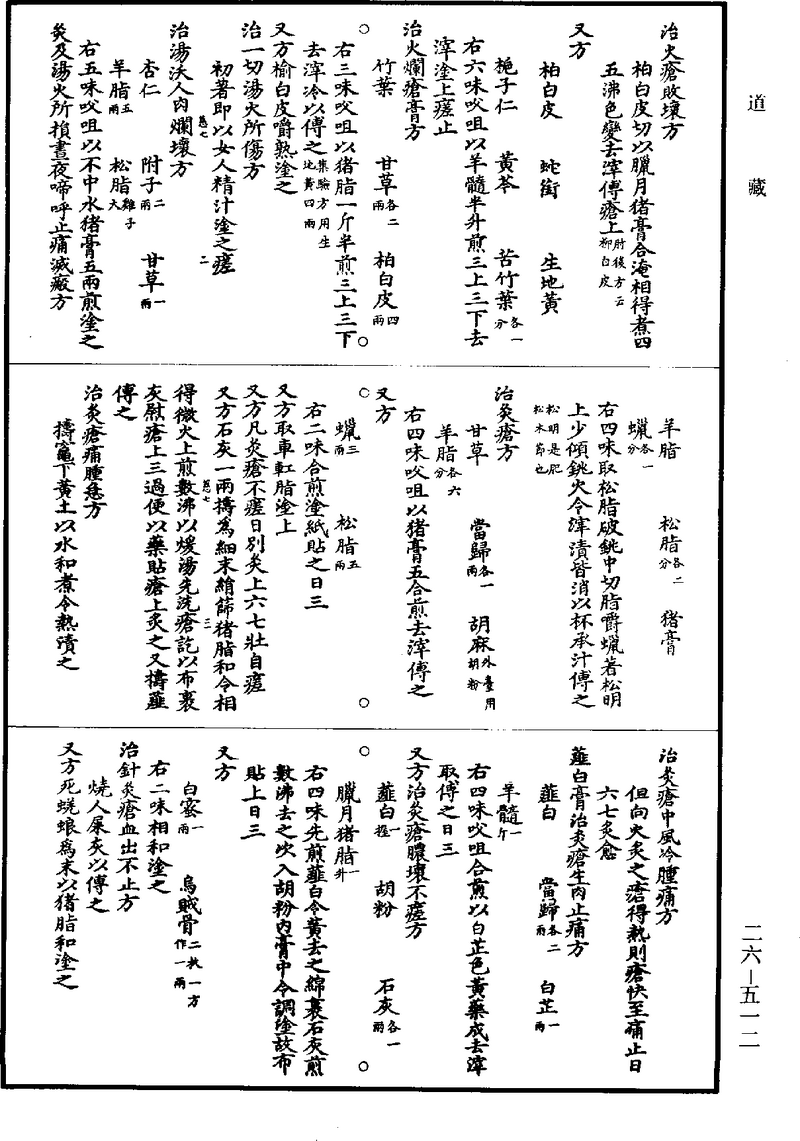 道藏
治火瘡敗壞方
柏白皮切以臘月猪膏合淹相得煮四
五沸色變去滓傅瘡上肘後方云柳白皮
又方
柏白皮　蛇銜　生地黃
梔子仁　黃芩　苦竹葉各一分
右六味㕮咀以羊髓半升煎三上三下去
滓塗上瘥止
治火爛瘡膏方
竹葉　甘草各二兩　柏白皮四兩
右三味㕮咀以猪脂一斤半煎三上三下
去滓冷以傅之集驗方用生地黃四兩
又方榆白皮嚼熟塗之
治一切湯火所傷方
初著即以女人精汁塗之瘥
惹七　二
治湯沃人肉爛壞方
杏仁　附子二兩　甘草一兩
羊脂五兩　松脂雞子大
右五味㕮咀以不中水猪膏五兩煎塗之
灸及湯火所損晝夜啼呼止痛滅瘢方
羊脂　松脂各二分　猪膏
蠟各一分
右四味取松脂破銚中切脂嚼蠟著松明
上少傾銚火令滓漬皆消以杯承汁傅之
松明是肥松木節也
治灸瘡方
甘草　當歸各一兩　胡麻外臺用胡粉
羊脂各六分
右四味㕮咀以猪膏五合煎去滓傅之
又方
蠟三兩　松脂五兩
右二味合煎塗紙貼之日三
又方取車缸脂塗上
又方凡灸瘡不瘥日別灸上六七壯自瘥
又方石灰一兩擣為細末絹篩猪脂和令相
惹七　三
得微火上煎數沸以煖湯先洗瘡訖以布裹
灰熨瘡上三過便以藥貼瘡上灸之又擣薤
傅之
治灸瘡痛腫急方
擣竈下黃土以水和煮令熱漬之
治灸瘡中風冷腫痛方
但向火灸之瘡得熱則瘡快至痛止日
六七灸愈
薤白膏治灸瘡生肉止痛方
薤白　當歸各二兩　白芷一兩
羊髓一斤
右四味㕮咀合煎以白芷色黃藥成去滓
取傅之日三
又方治灸瘡膿壞不瘥方
薤白一握　胡粉　石灰各一兩
臘月猪脂一升
右四味先煎薤白令黃去之綿裹石灰煎
數沸去之次入胡粉內膏中令調塗故布
貼上日三
又方
白蜜一兩　烏賊骨二枚一方作一兩
右二味相和塗之
治針灸瘡血出不止方
燒人屎灰以傅之
又方死蜣蜋為末以猪脂和塗之
二六—五一二